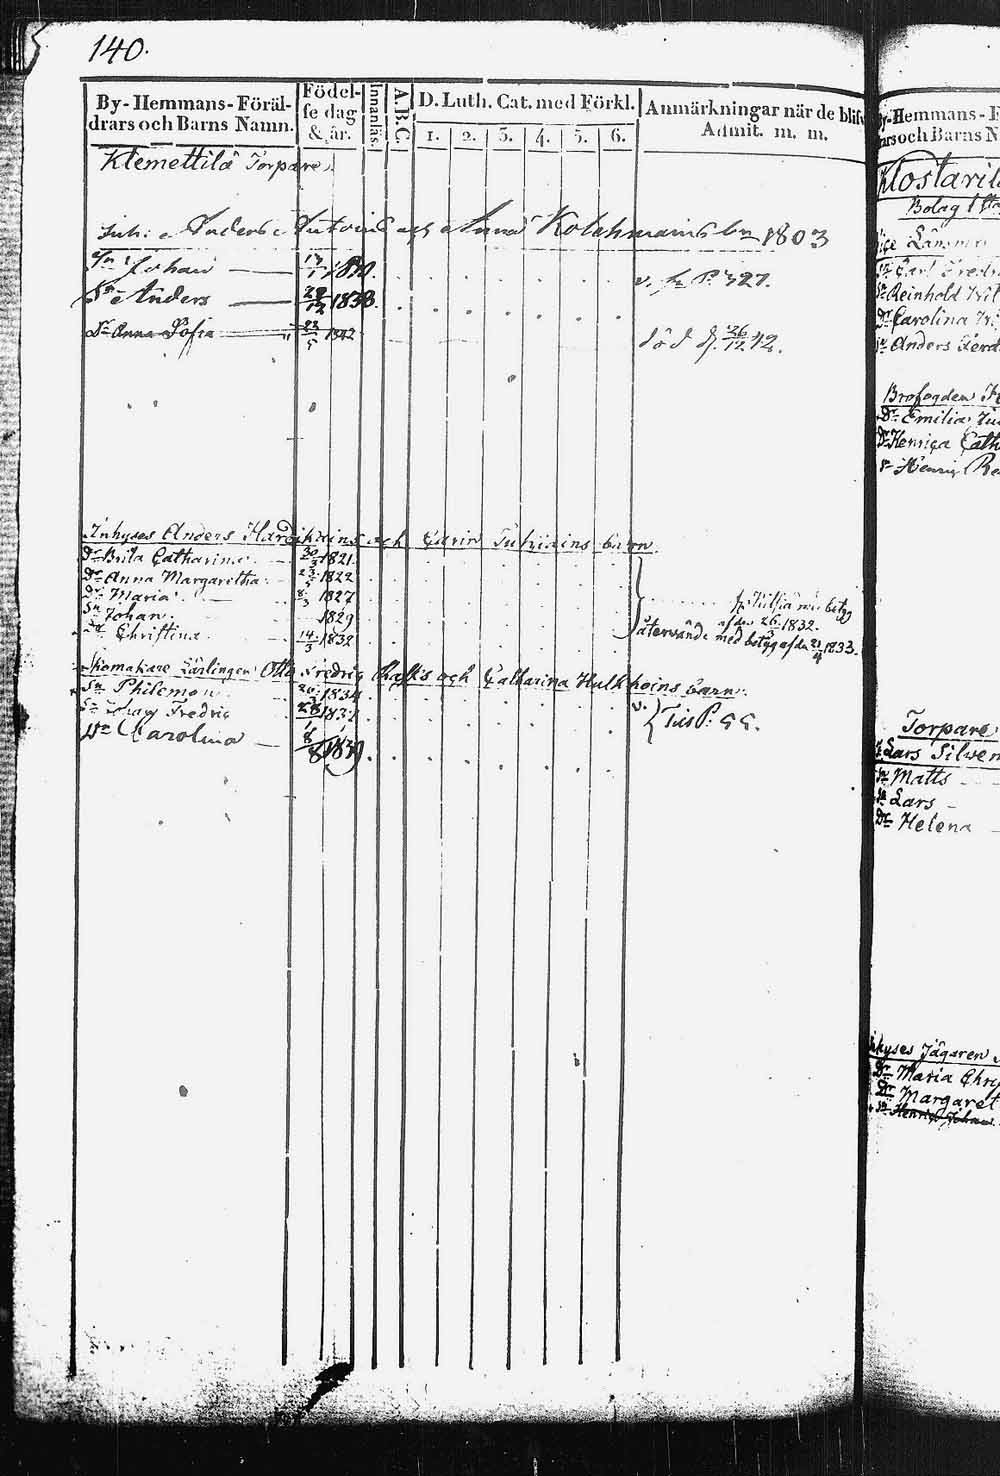 140.
By-Hemmans-Föräl-
drars och Barns Namn.
Födel-
se dag
& år.
Innanläs.
A.B.C.
D. Luth. Cat. med Förkl.
1. 2. 3. 4. 5. 6.
Anmärkningar när de blifv
Admit. m. m.
Klemettilä Torpare
Inh: Anders och Anna Kolehmains bn 1803
Sn Johan 13/1
v. fr P. 327.
Sn Anders 1838.
Dr Anna Sofia 1842 död d. 26/12 42.
Inhyses Anders Hardikains och Carin Tuhkains barn
Dr Brita Catharina 30/3 1821.
Dr Anna Margaretha 1822
Dr Maria 8/3 1827 betyg
Sn Johan 1829 af den 26/3 1832.
Dr Christina 14/3 1832 återvände med betyg af den 21/4 1833.
Skomakare Lärlingen Otto Fredric och Catharina Hulkkoins barn.
Sn Philemon 1834
Sn Johan Fredric 1831 P. 55.
Dr Carolina 8/8 1839
By-Hemmans-F
rars och Barns N
Klostaril
Bolag
Länsman
Sn Carl Fredr
Sn Reinhold Wil
Dr Carolina
Sn Anders Ferd
Brofogden
Dr Emilia
Dr Henrica Cath
Sn Henric
Torpare
Lars Silven
Sn Matts
Sn Lars
Dr Helena
Inhyses Jägaren
Dr Maria Chri
Dr Margaret
Sn Henric Johan